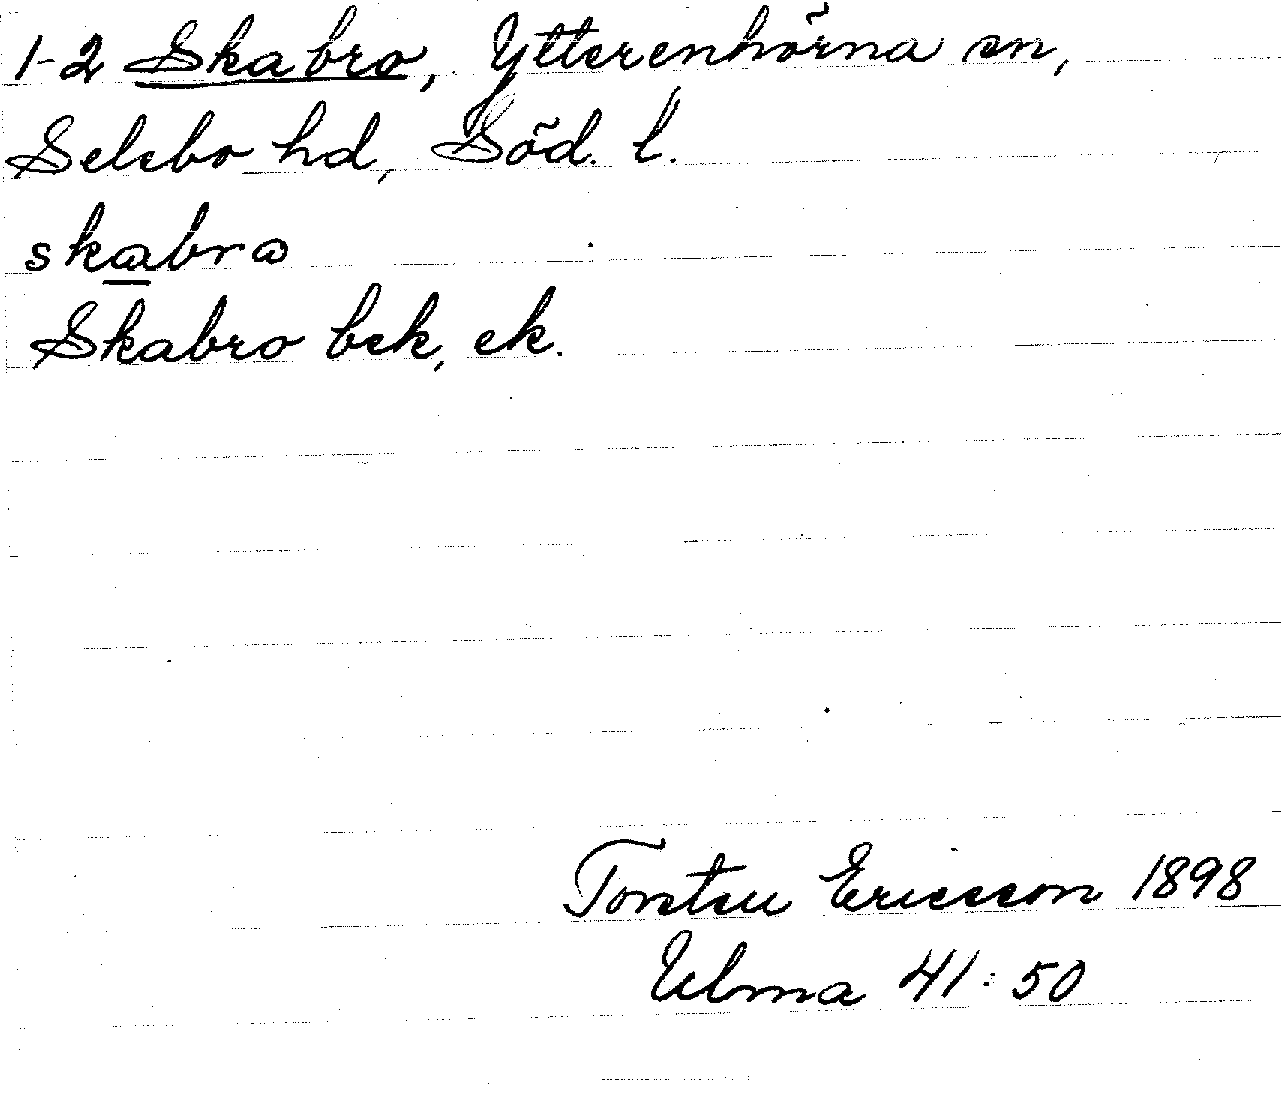 1-2 Skabro, Ytterenhörna sn,
Selebo hd, Söd. l.
skabra
Skabro bek, ek.
Torsten Ericsson 1898
Ulma 41:50